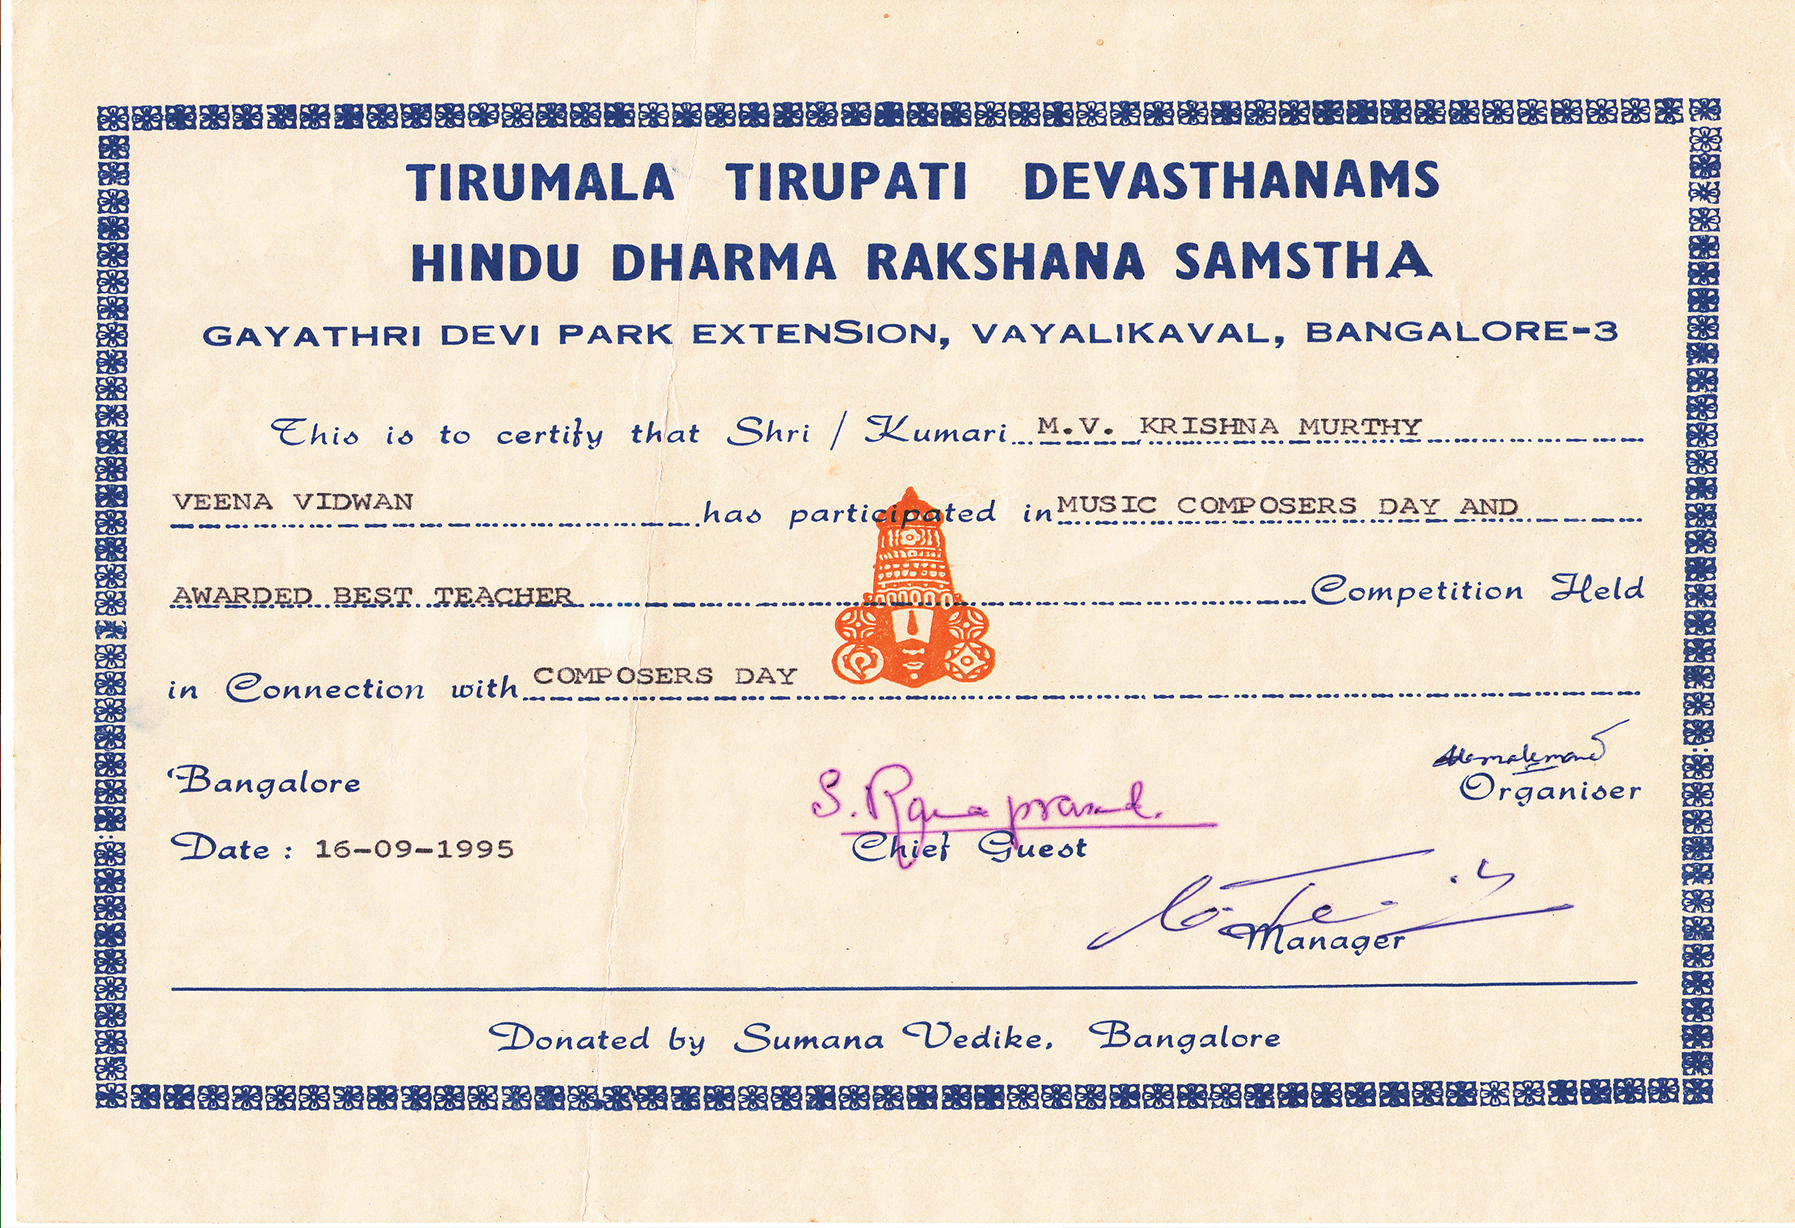 TIRUMALA TIRUPATI DEVASTHANAMS
HINDU DHARMA RAKSHANA SAMSTHA
GAYATHRI DEVI PARK EXTENSION, VAYALIKAVAL, BANGALORE-3
This is to certify that Shri / Kumari M.V. KRISHNA MURTHY
VEENA VIDWAN has participated in MUSIC COMPOSERS DAY AND
AWARDED BEST TEACHER Competition Held
in Connection with COMPOSERS DAY
Bangalore
Organiser
Date : 16-09-1995
S.
Chief Guest
Manager
Donated by Sumana Vedike, Bangalore